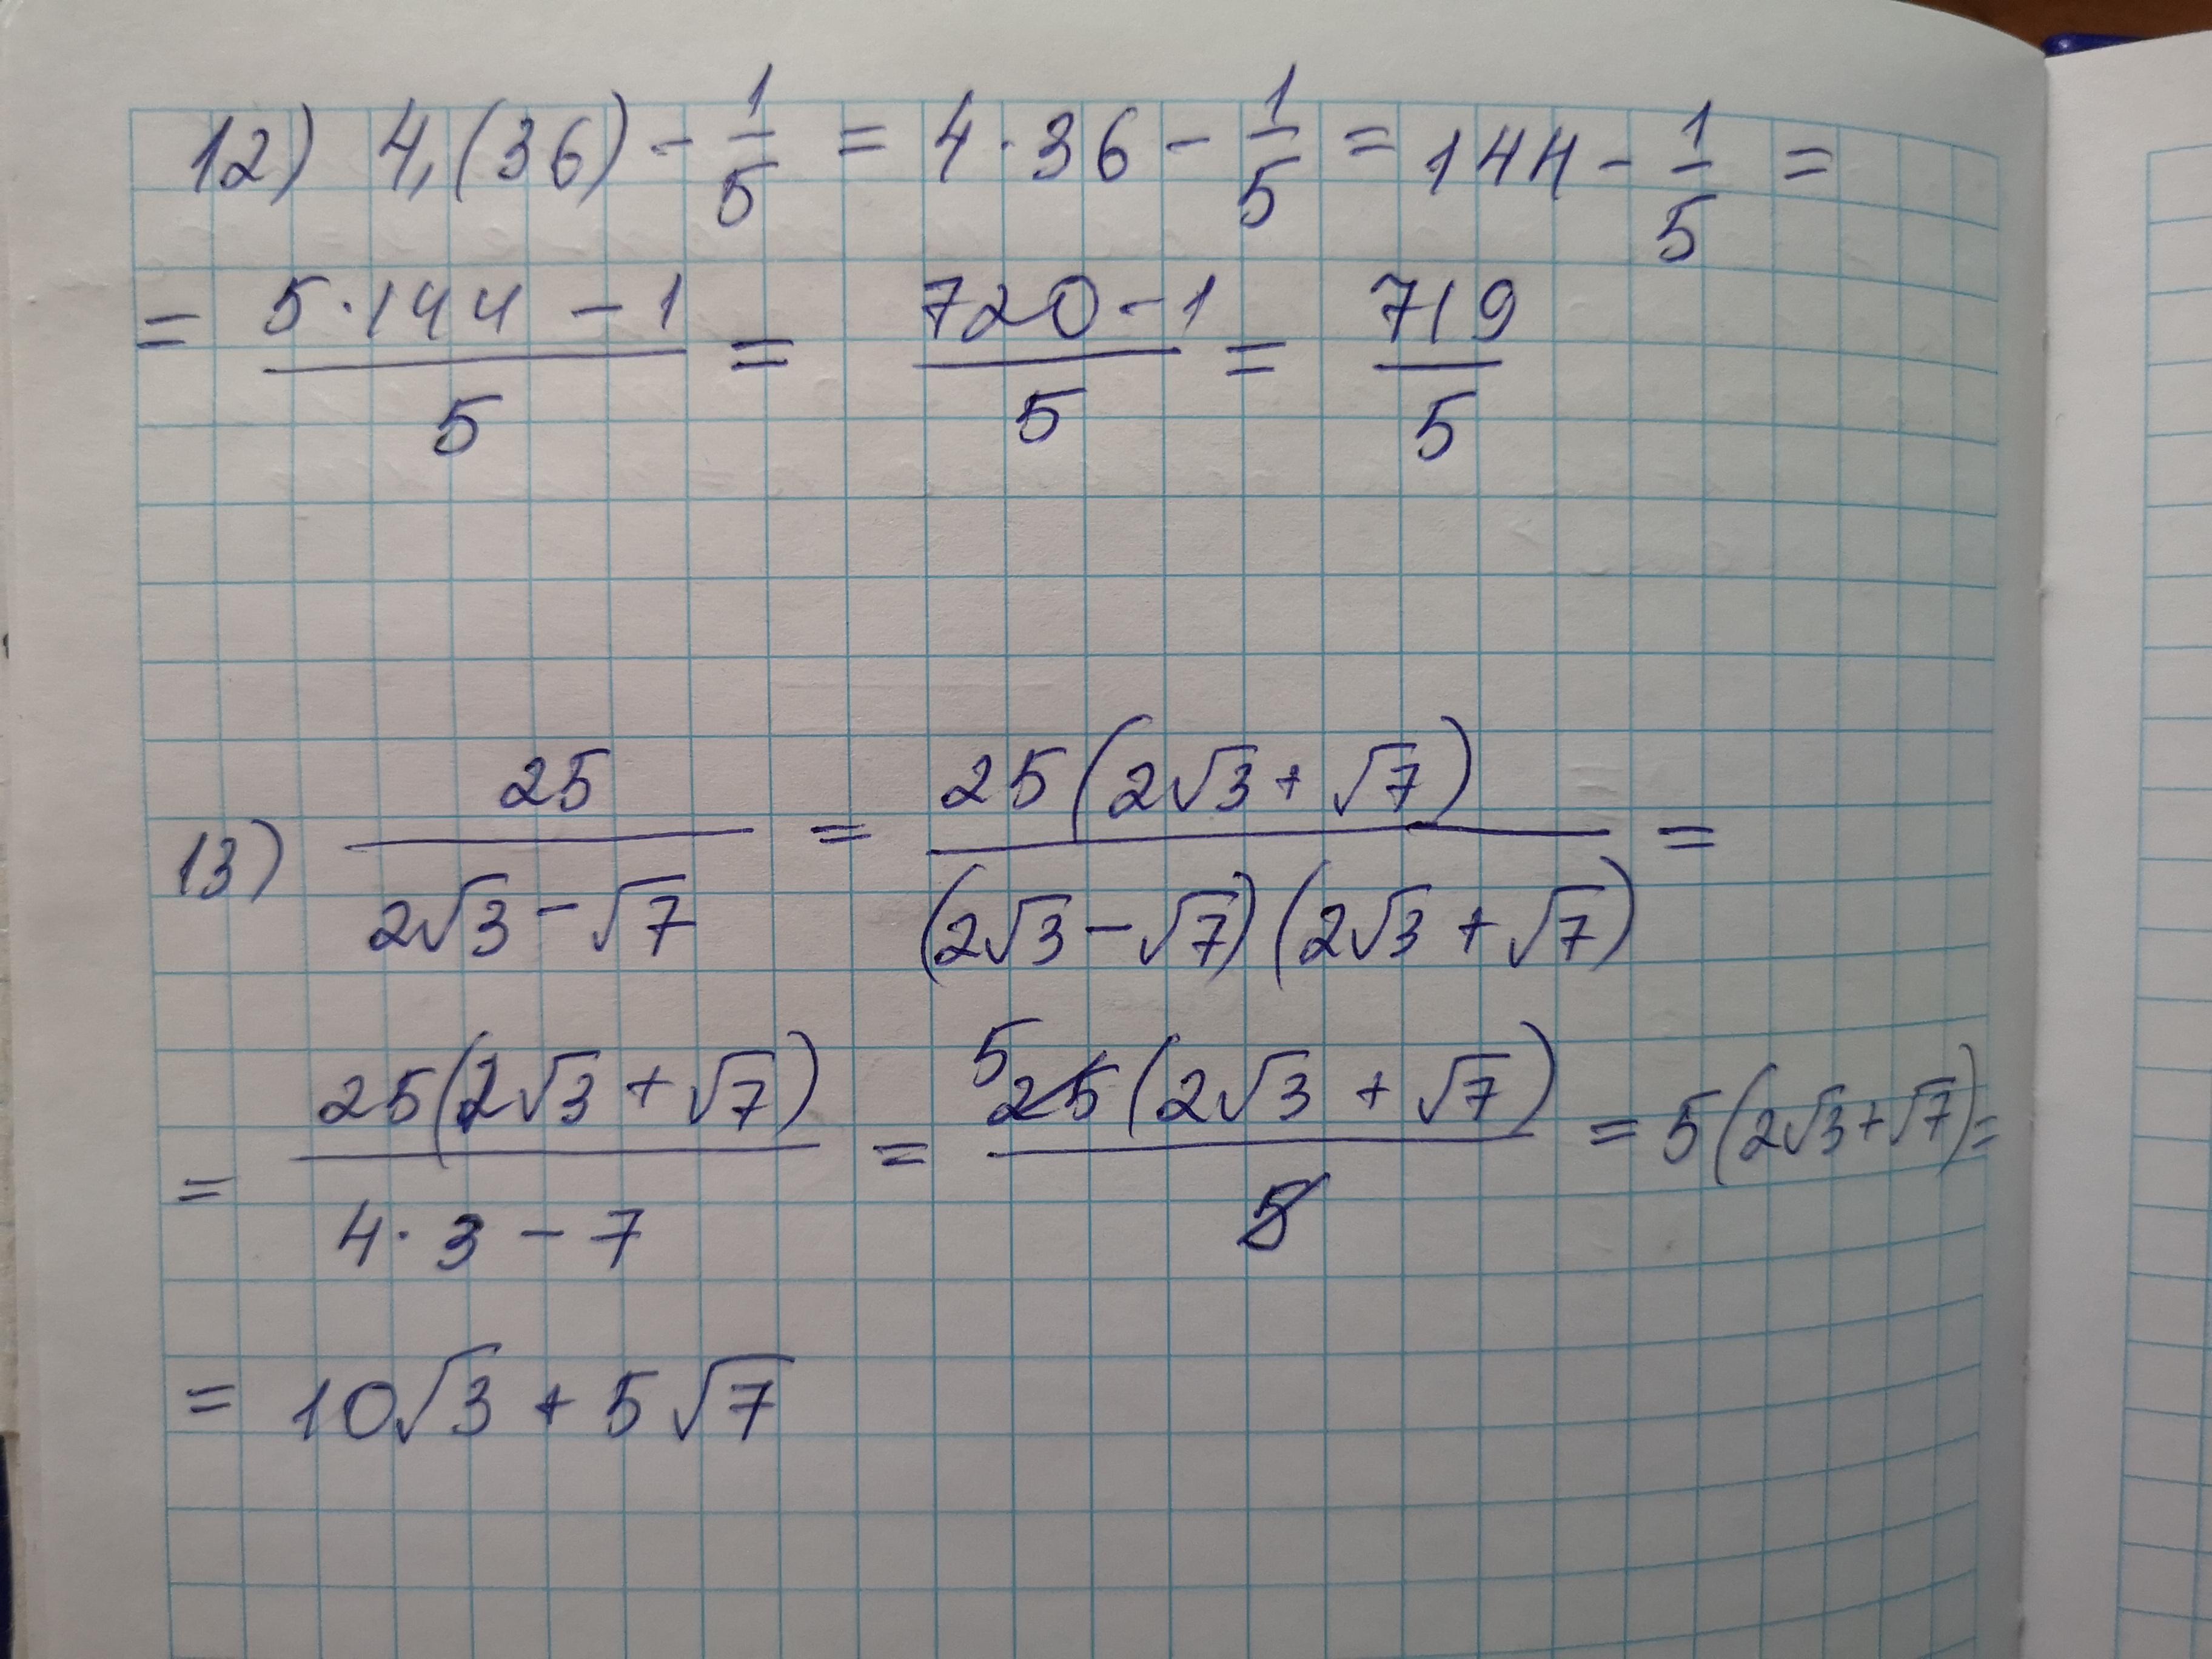 12) 4,(36) - 1/5 = 4·36 - 1/5 = 144 - 1/5 =
= (5·144 - 1)/5 = (720 - 1)/5 = 719/5
13) 25/(2√3 - √7) = 25(2√3 + √7)/((2√3 - √7)(2√3 + √7)) =
= 25(2√3 + √7)/(4·3 - 7) = 5 25(2√3 + √7)/5 = 5(2√3 + √7) =
= 10√3 + 5√7